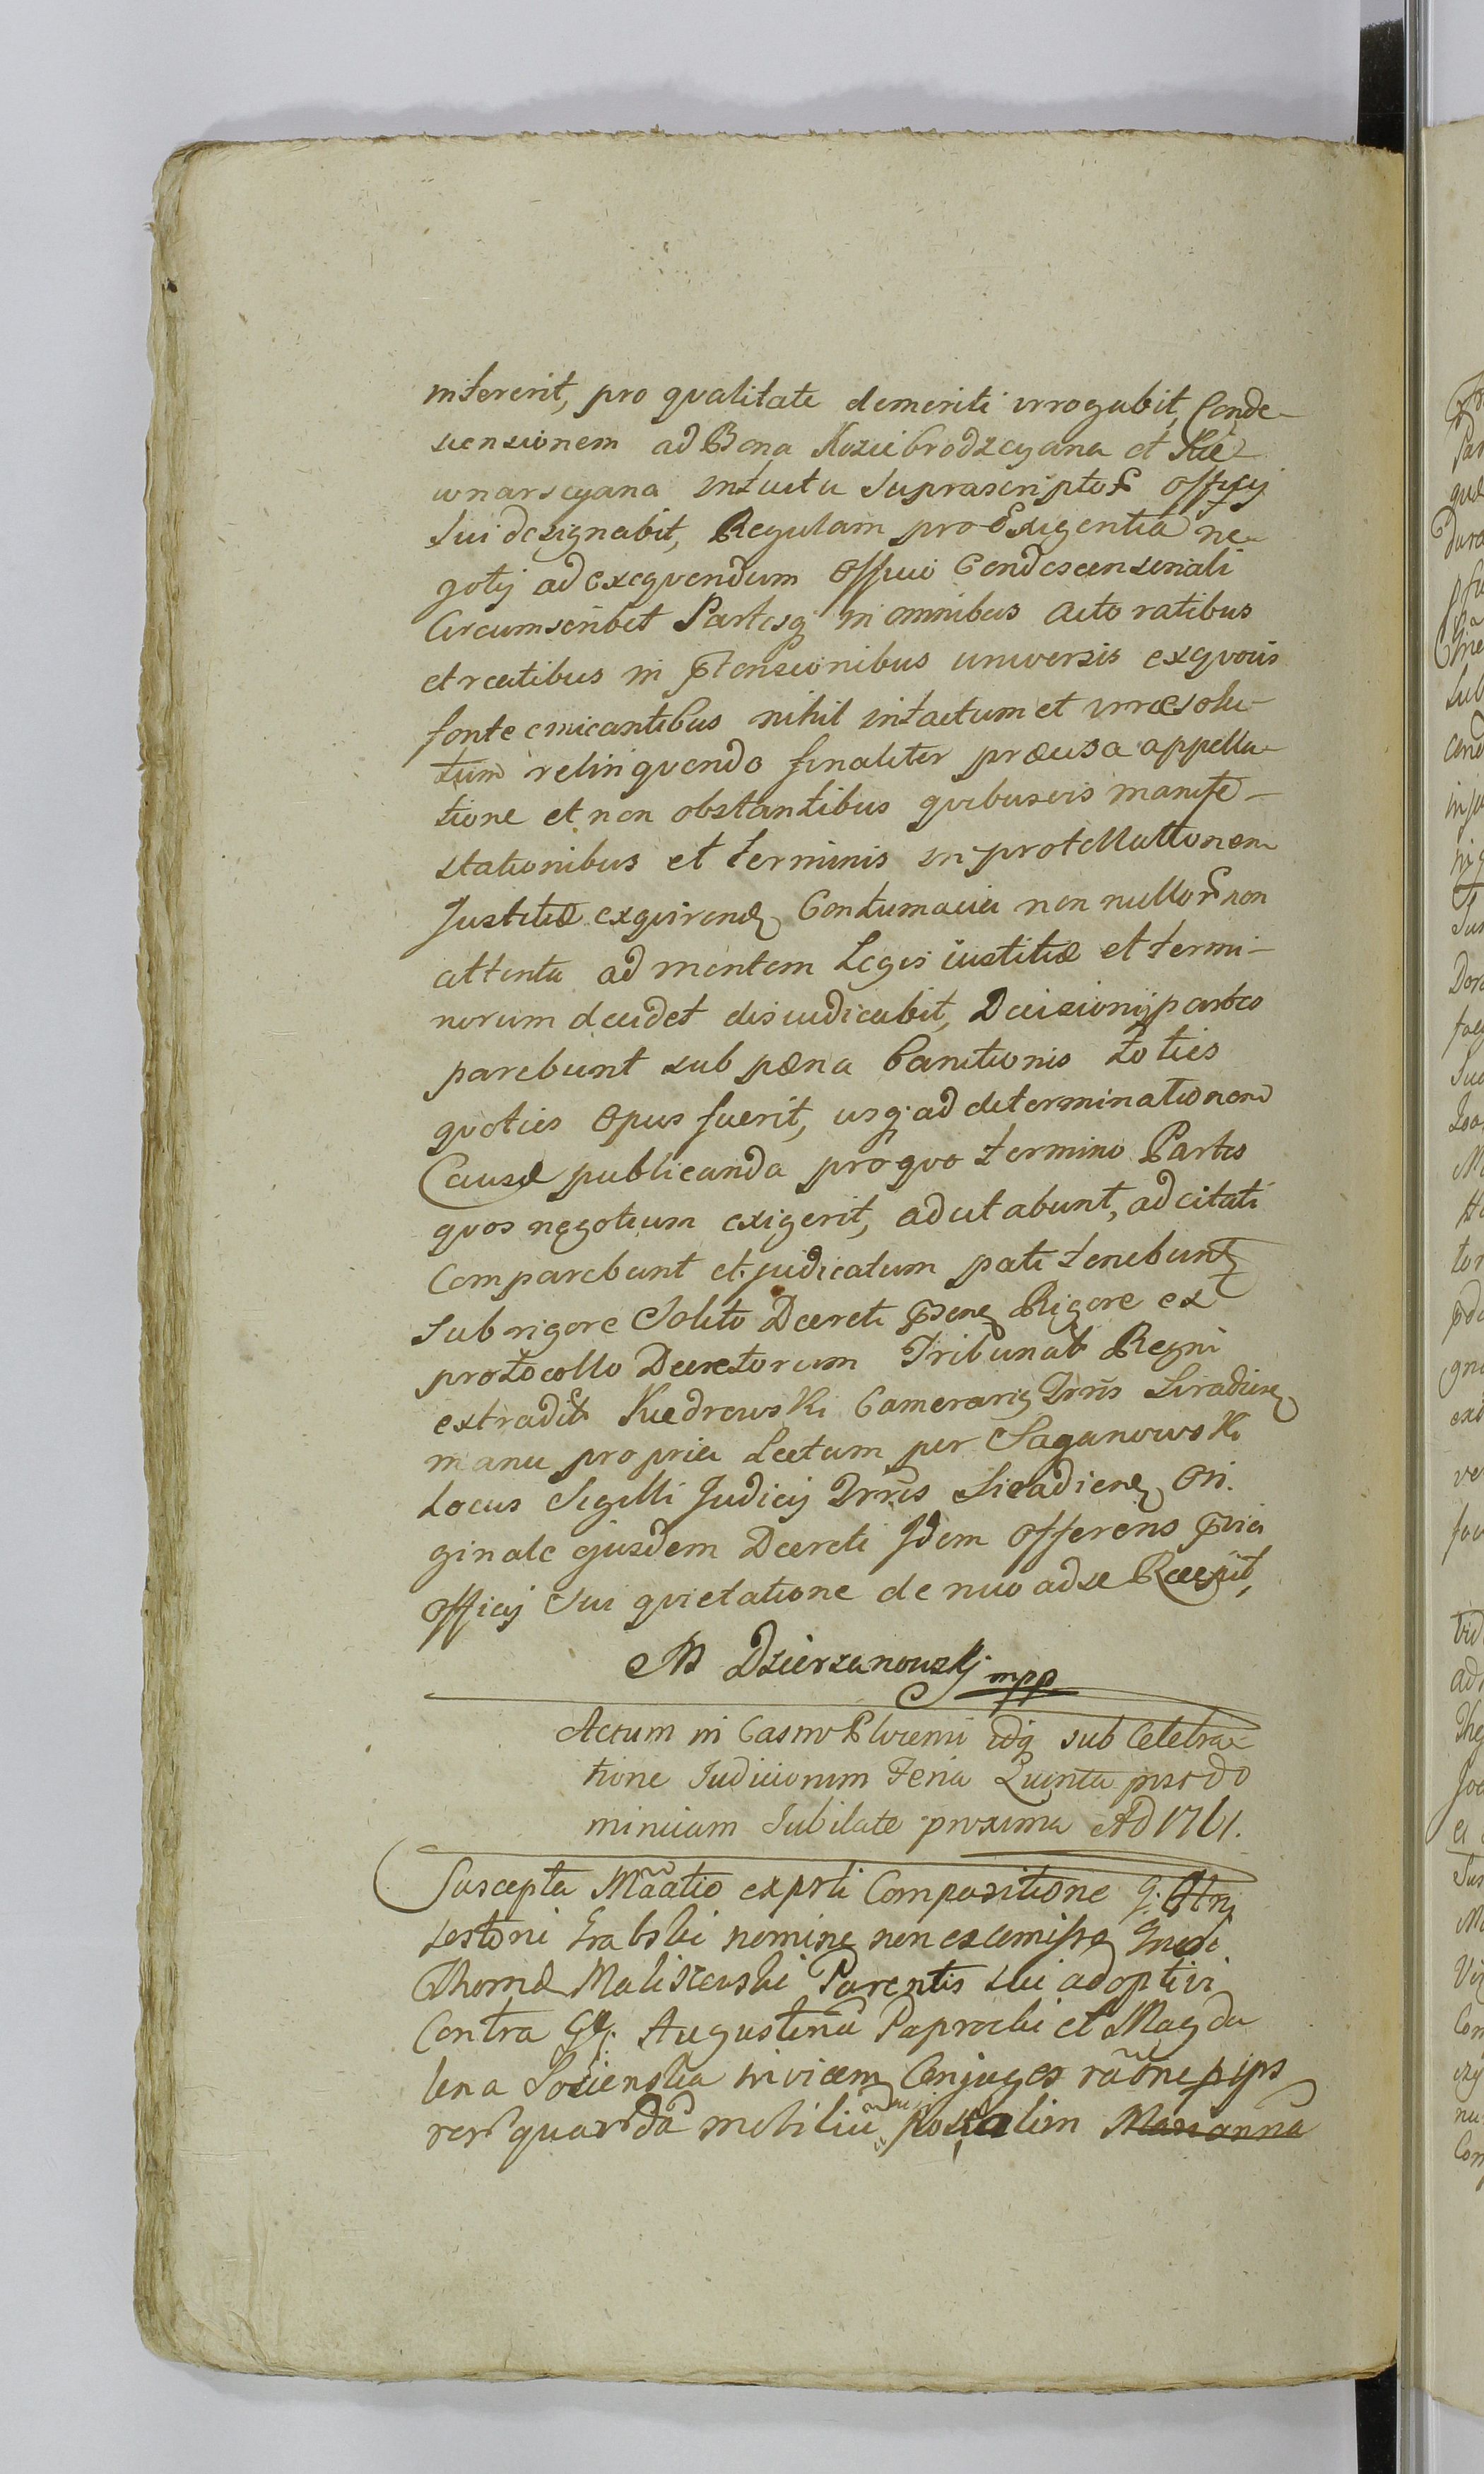 intererit, pro qvalitate demeriti irrogabit, Conde-
scensionem ad Bona Koziebrodzcyana et Kie-
wnarscyana intuitu suprascriptor Officij
sui designabit, Regulam pro Exigentia ne-
gotij ad exeqvendum Officio Condescensionali
Circumscribet Partesq in omnibus actoratibus
et reatibus in ptensionibus universis exqvovis
fonte emicantibus nihil intactum et irresolu-
tum relinqvendo finaliter præcisa appella-
tione et non obstantibus qvibusvis manife-
stationibus et terminis in
Justitiæ exqvirend Contumacia non nullor non
attenta ad mentem Legis iustitiæ et termi-
norum decidet disiudicabit, Decisioniq partes
parebunt sub pæna Banitionis toties
qvoties Opus fuerit, usq ad determinationem
Causæ publicanda pro qvo termino Partes
qvos negotium exigerit, adcitabunt, adcitati
Comparebunt et judicatum pati tenebunt
sub rigore Solito Decreti psen Rigore ex
protocollo Decretorum Tribunal Regni
extradit Kiedrowski Camerarij Trris Siradien
manu propria Lectum per Saganowski
Locus Sigilli Judicij Trris Siradien Ori-
ginale ejusdem Decreti Idem Offerens pvia
Officij sui qvietatione denuo ad se Recepit,
M Dzierzanowski mpp
Actum in Castro Plocensi idq sub Celebra-
tione Iudiciorum Feria Quinta post do
minicam Jubilate proxima AD 1761.
Suscepta Mãatio exprti Compositione G.
Grabski nomine non
Thomæ Maliszewski Parentis sui adoptivi
Contra GG. Augustinũ Paprocki et Magda
lena invicem Conjuges raõne
rer quarũdã mobiliũ Marianna